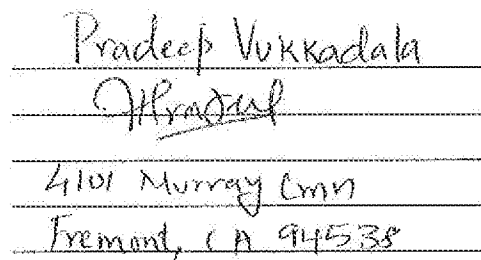 Pradeep Vukkadala
4101 Murray Cmn
Fremont, CA 94538